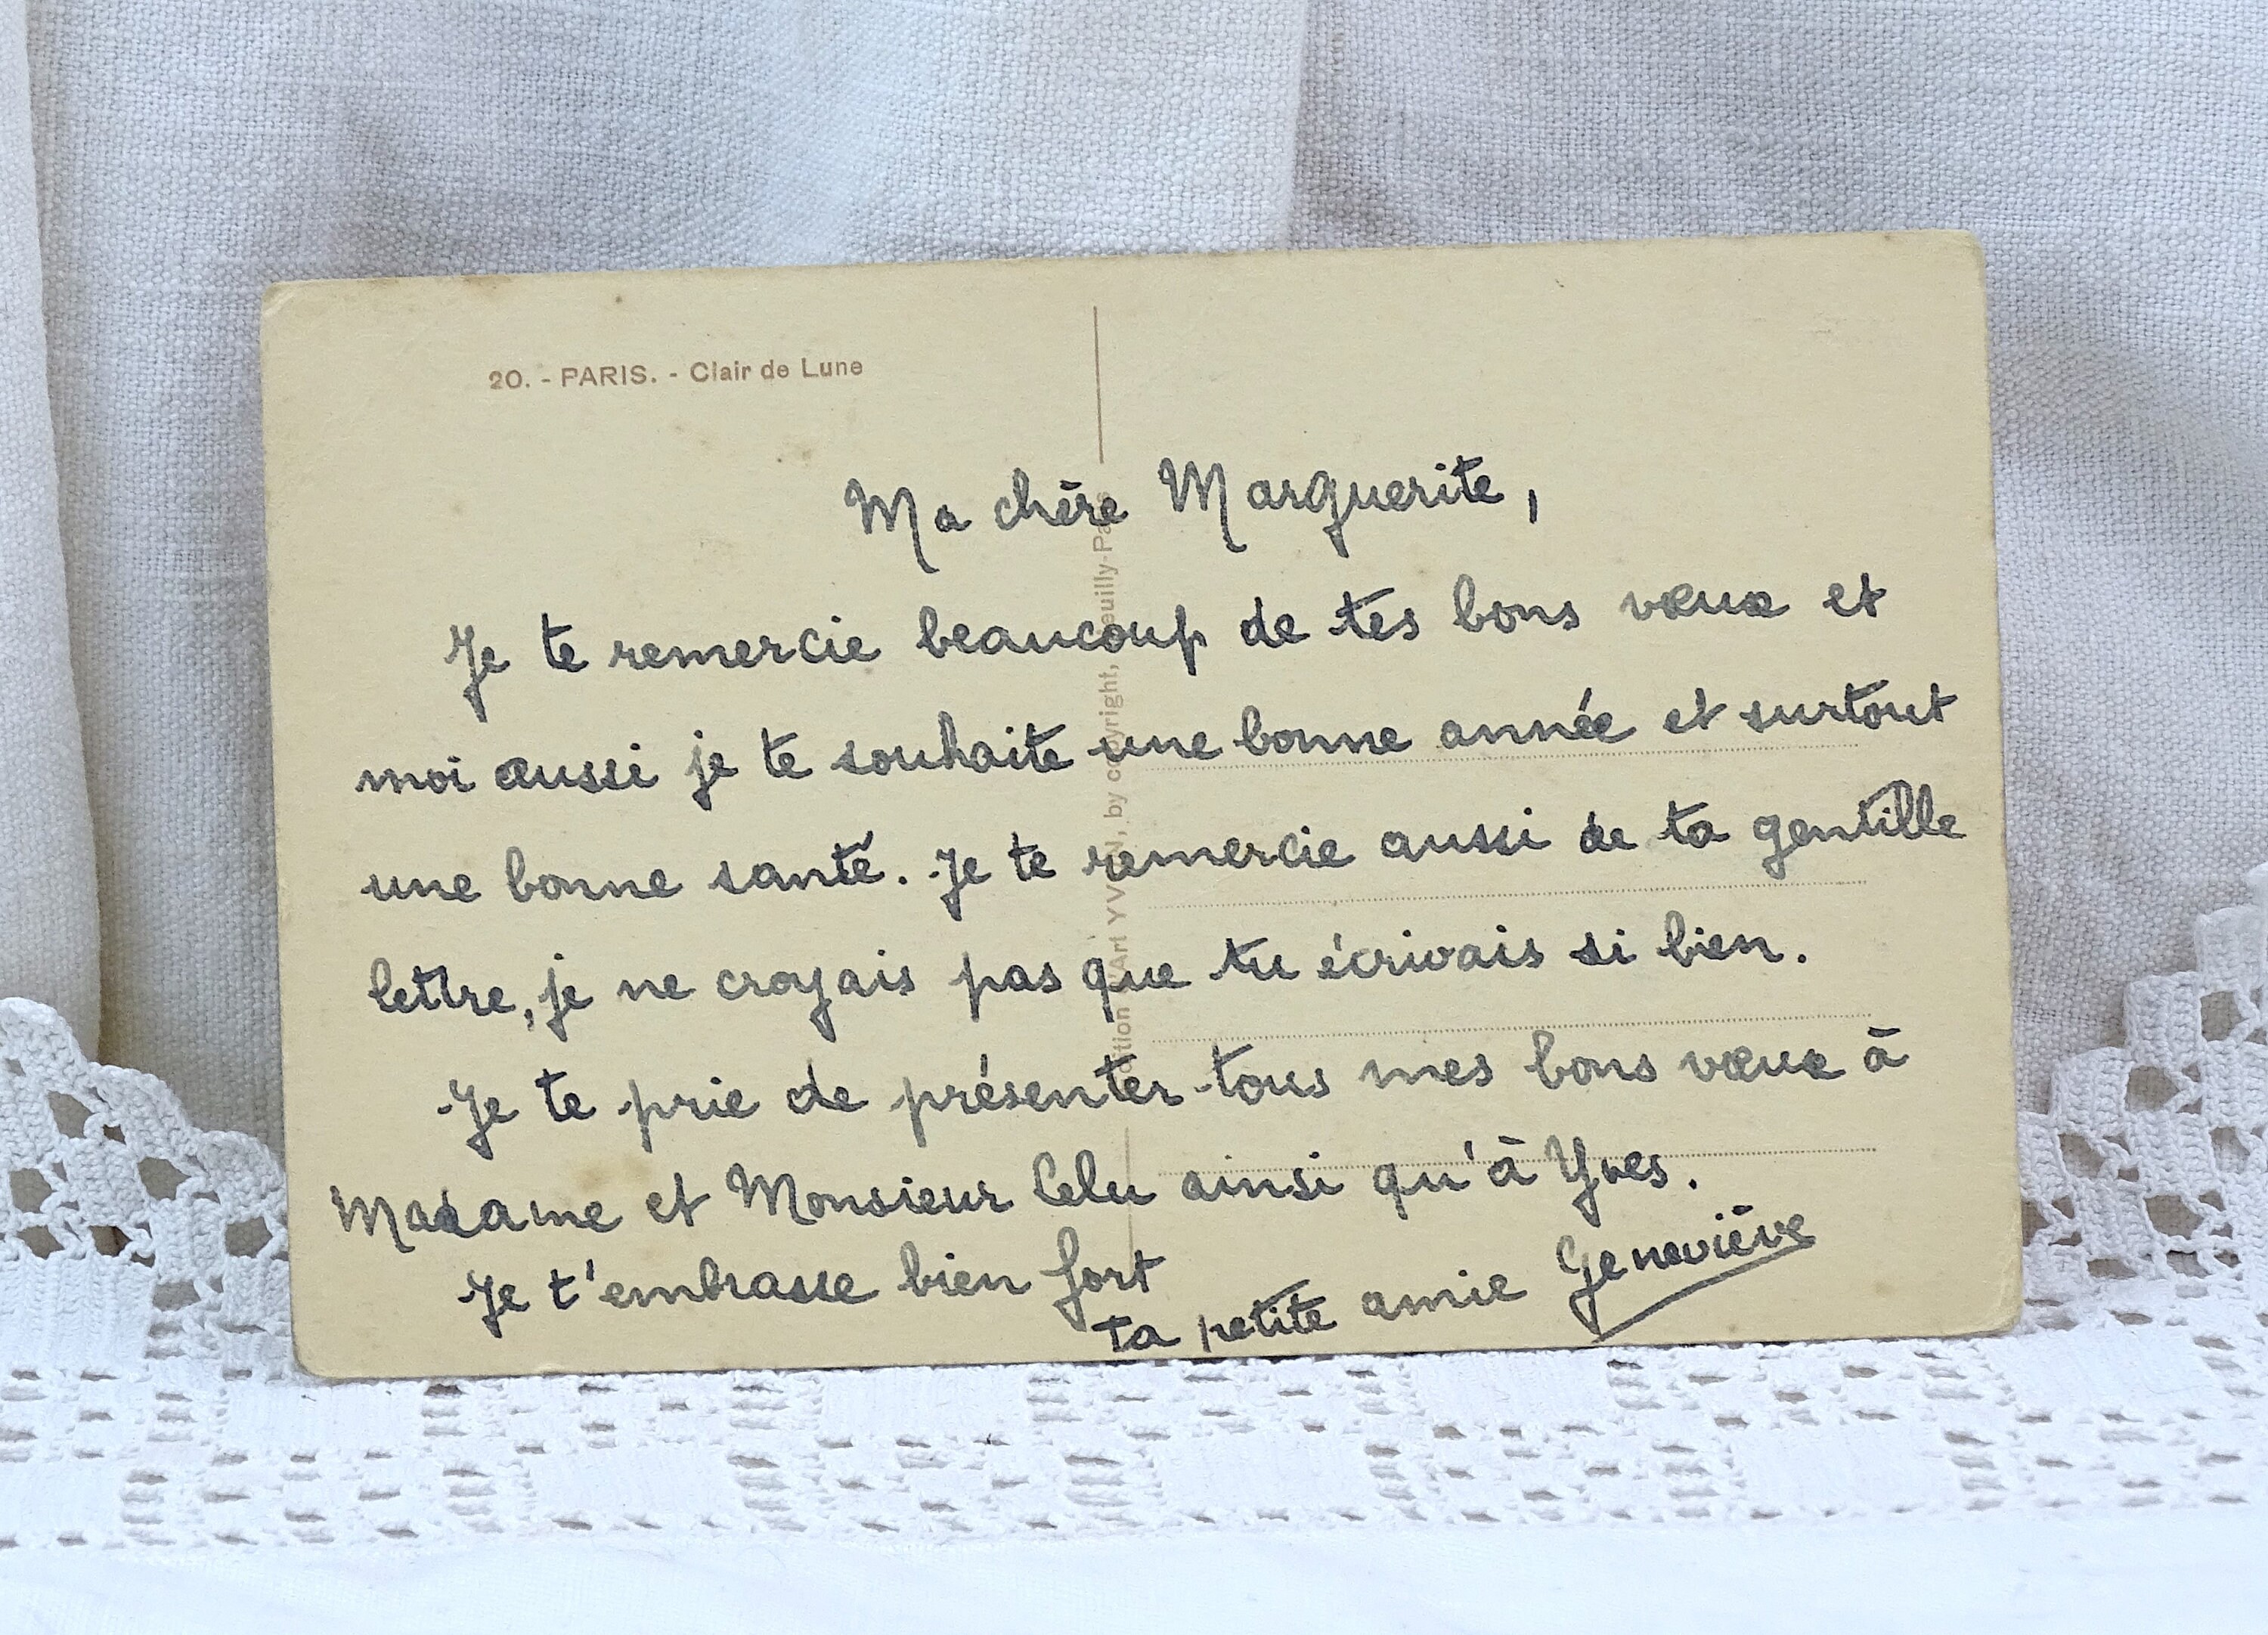 20. - PARIS. - Clair de Lune
Ma chère Marguerite,
Je te remercie beaucoup de tes bons vœux et
moi aussi je te souhaite une bonne année et surtout
une bonne santé. Je te remercie aussi de ta gentille
lettre, je ne croyais pas que tu écrivais si bien.
Je te prie de présenter tous mes bons vœux à
Madame et Monsieur Celu ainsi qu'à Yves.
Je t'embrasse bien fort
ta petite amie Geneviève
d'Art YV N, by copyright, euilly-Pa